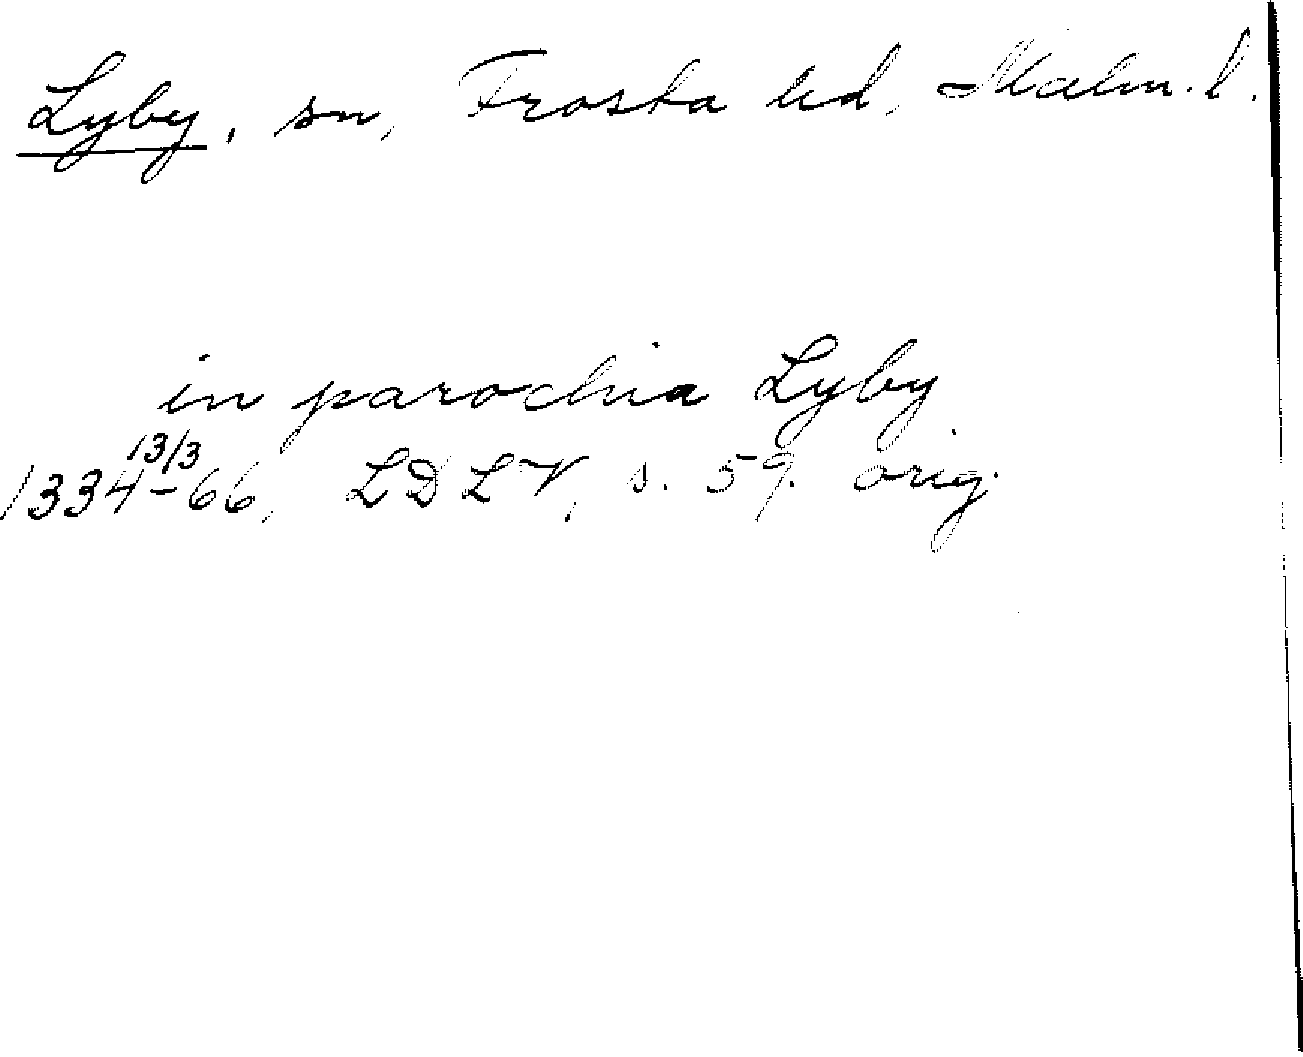 Lyby, sn, Frosta hd, Malm. l.
in parochia Lyby
1334 13/3 -66, LDLV, s. 59. orig.